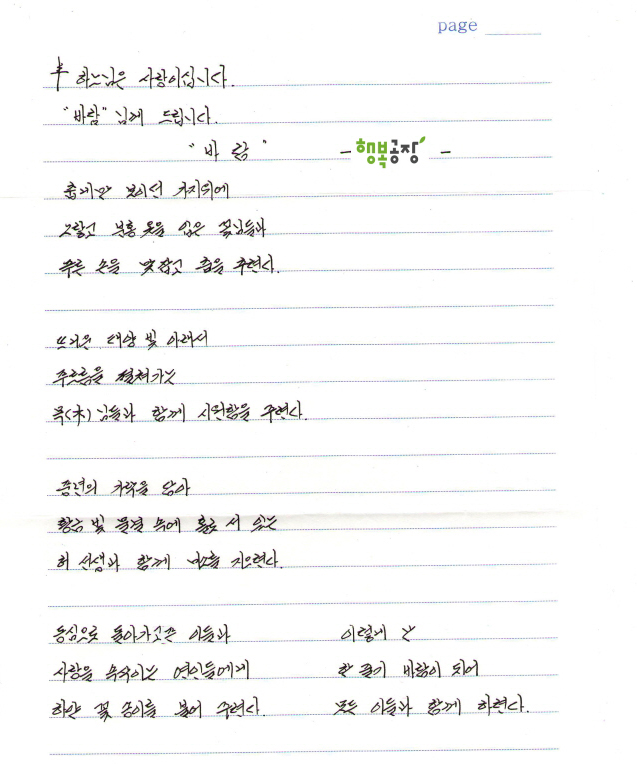 page
† 하느님은 사랑이십니다.
"바람"님께 드립니다.
"바 람" - 행복공장 -
춥게만 보이던 가지위에
그렇고 분홍 옷을 입은 꽃님들과
푸른 손을 맞잡고 춤을 추련다.
뜨거운 태양 빛 아래서
주르름을 펼쳐가는
목(木)님들과 함께 시원함을 주련다.
중년의 가락을 담아
황금 빛 물결 속에 홀로 서 있는
허 선생과 함께 미소를 지으련다.
동심으로 돌아가고픈 이들과
사랑을 속삭이는 연인들에게
하얀 꽃 송이를 불어 주련다.
이렇게 난
한 줄기 바람이 되어
모든 이들과 함께 하련다.